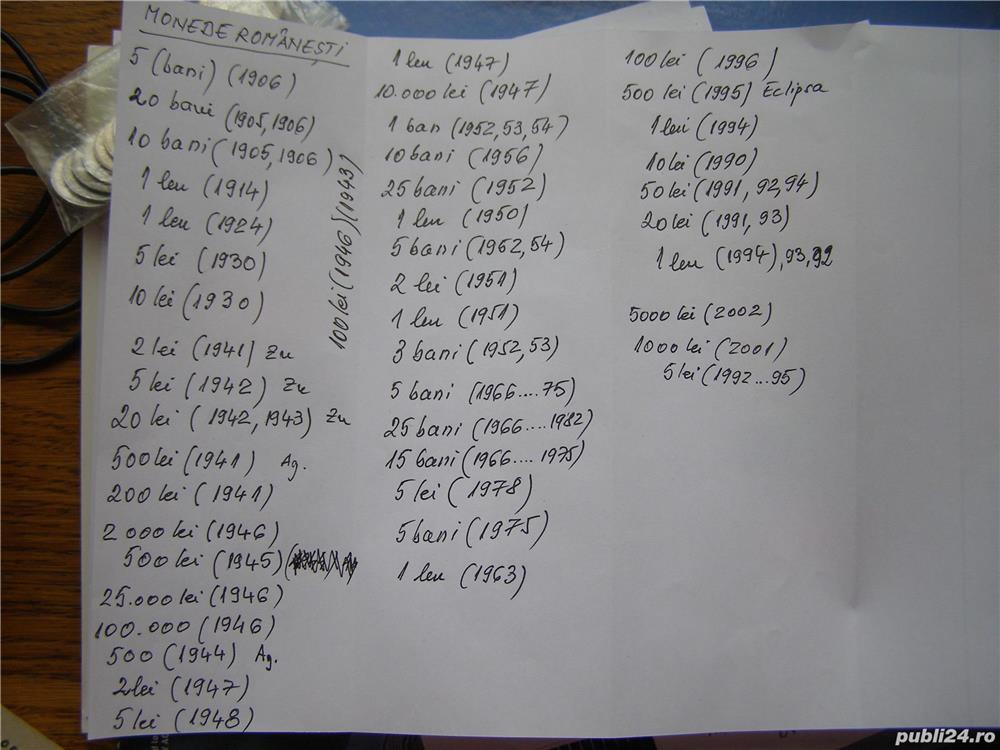 MONEDE ROMÂNEȘTI
5 (bani) (1906)
20 bani (1905, 1906)
10 bani (1905, 1906)
1 leu (1914)
1 leu (1924)
5 lei (1930)
10 lei (1930)
100 lei (1946) (1943)
2 lei (1941) Zn
5 lei (1942) Zn
20 lei (1942, 1943) Zn
500 lei (1941) Ag.
200 lei (1941)
2 000 lei (1946)
500 lei (1945)
25.000 lei (1946)
100.000 (1946)
500 (1944) Ag.
2 lei (1947)
5 lei (1948)
1 leu (1947)
10.000 lei (1947)
1 ban (1952, 53, 54)
10 bani (1956)
25 bani (1952)
1 leu (1950)
5 bani (1962, 54)
2 lei (1951)
1 leu (1951)
3 bani (1952, 53)
5 bani (1966....75)
25 bani (1966....1982)
15 bani (1966.... 1975)
5 lei (1978)
5 bani (1975)
1 leu (1963)
100 lei (1996)
500 lei (1995) Eclipsa
1 leu (1994)
10 lei (1990)
50 lei (1991, 92, 94)
20 lei (1991, 93)
1 leu (1994), 93, 92
5000 lei (2002)
1000 lei (2001)
5 lei (1992...95)
publi24.ro